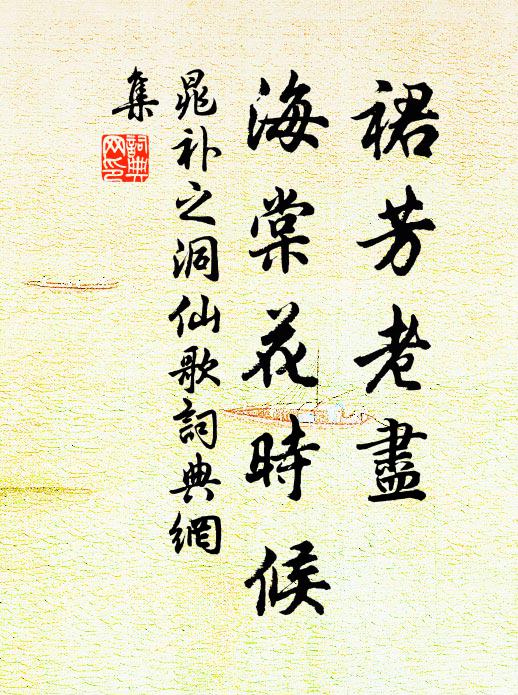 裙芳老盡
海棠花時候
晁补之洞仙歌詞典網
集
詞典
网印